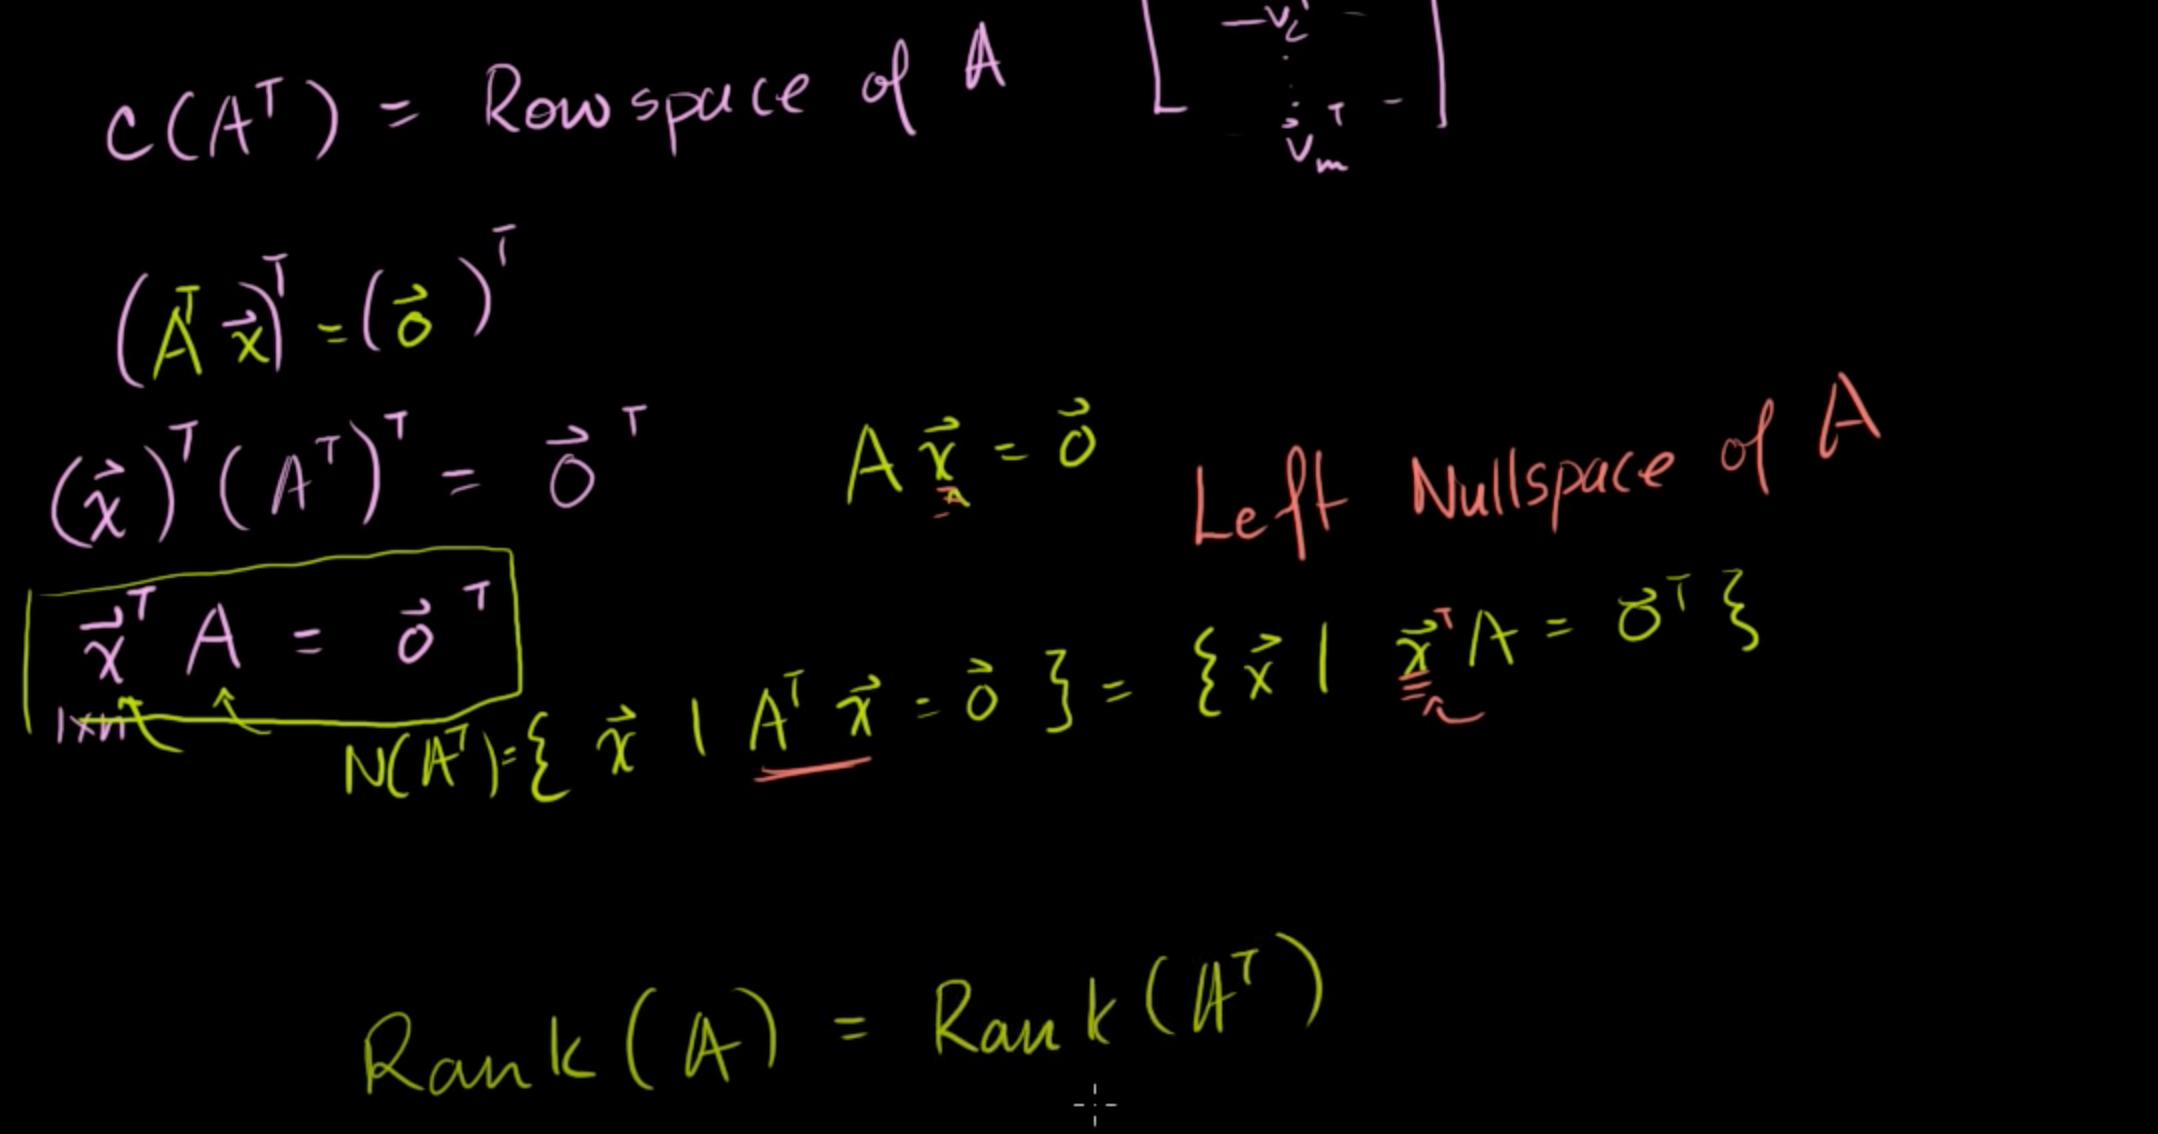 —v⃗ᵢᵀ —
C(Aᵀ) = Rowspace of A
v⃗ₘᵀ –
(Aᵀ x⃗)ᵀ = (0⃗)ᵀ
(x⃗)ᵀ (Aᵀ)ᵀ = 0⃗ᵀ
A x⃗ = 0⃗
Left Nullspace of A
x⃗ᵀ A = 0⃗ᵀ
1×n
N(Aᵀ) = { x⃗ | Aᵀ x⃗ = 0⃗ } = { x⃗ | x⃗ᵀ A = 0⃗ᵀ }
Rank(A) = Rank(Aᵀ)